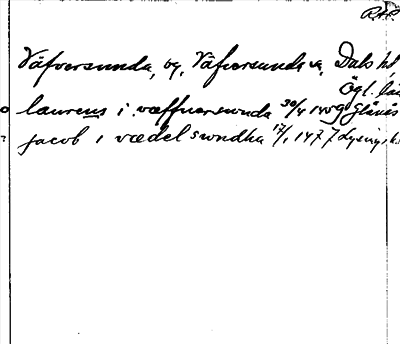 R.A.P.
Väfversunda, by, Väfversunda sn, Dals hd
Ögl. län
laurens i væffuersunda 30/4 1459 Glänås
jacob i wædelswndha 17/1 1477